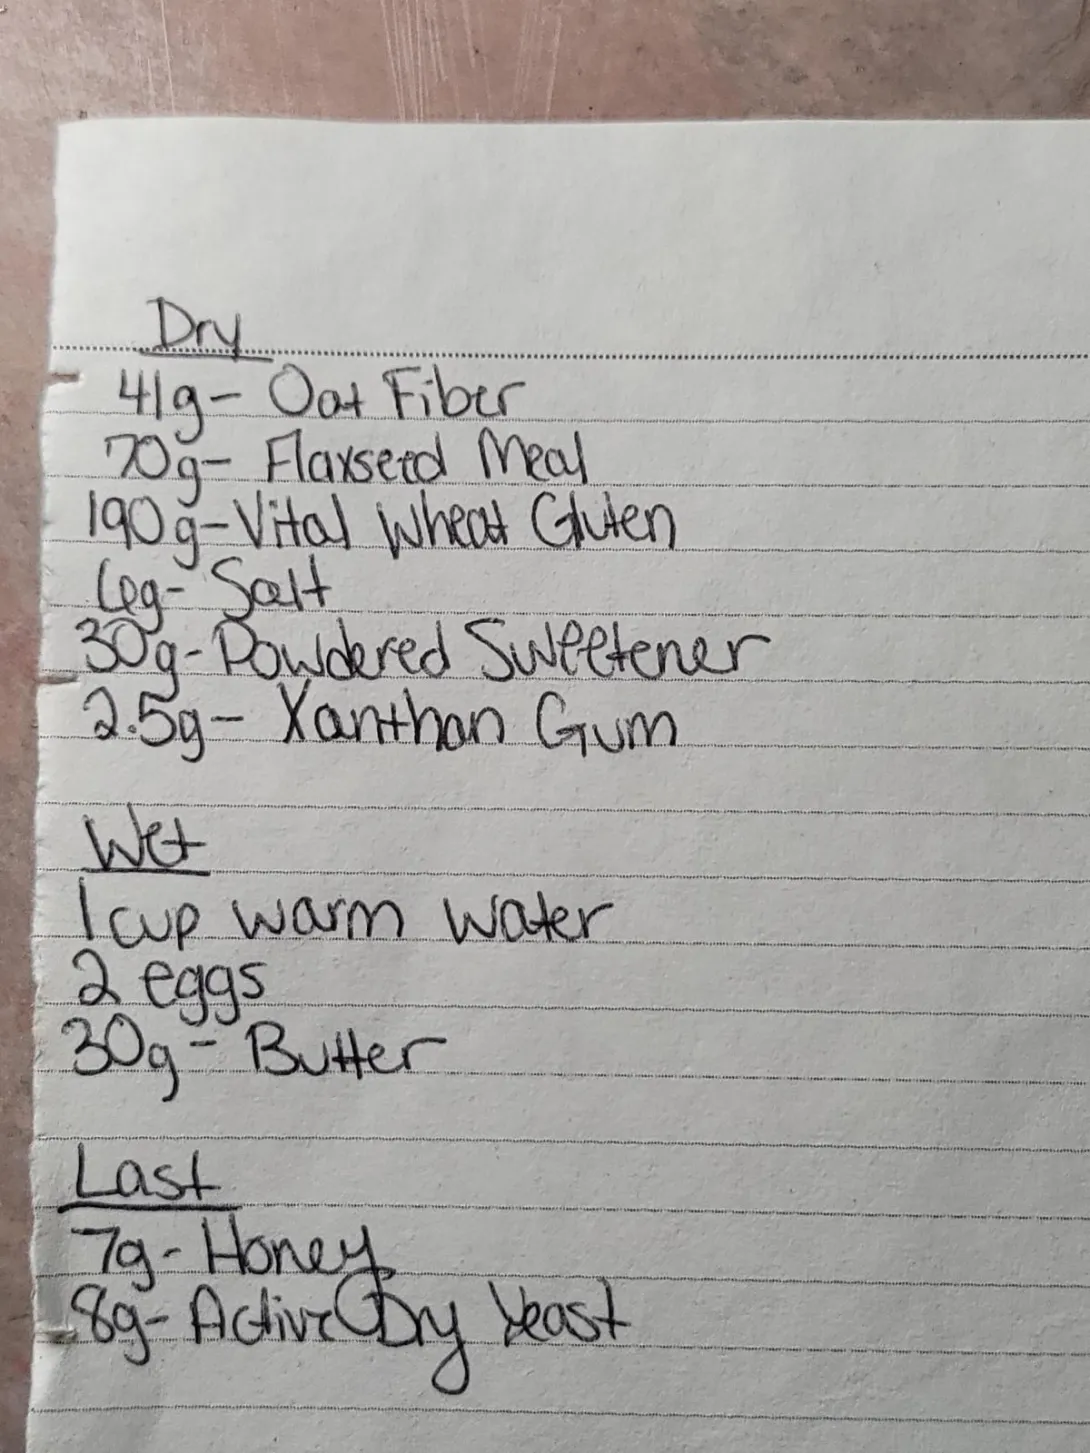 Dry
41g- Oat Fiber
70g- Flaxseed Meal
190g-Vital Wheat Gluten
6g- Salt
30g-Powdered Sweetener
2.5g- Xanthan Gum
Wet
1 cup warm water
2 eggs
30g- Butter
Last
7g- Honey
8g- Active Dry Yeast